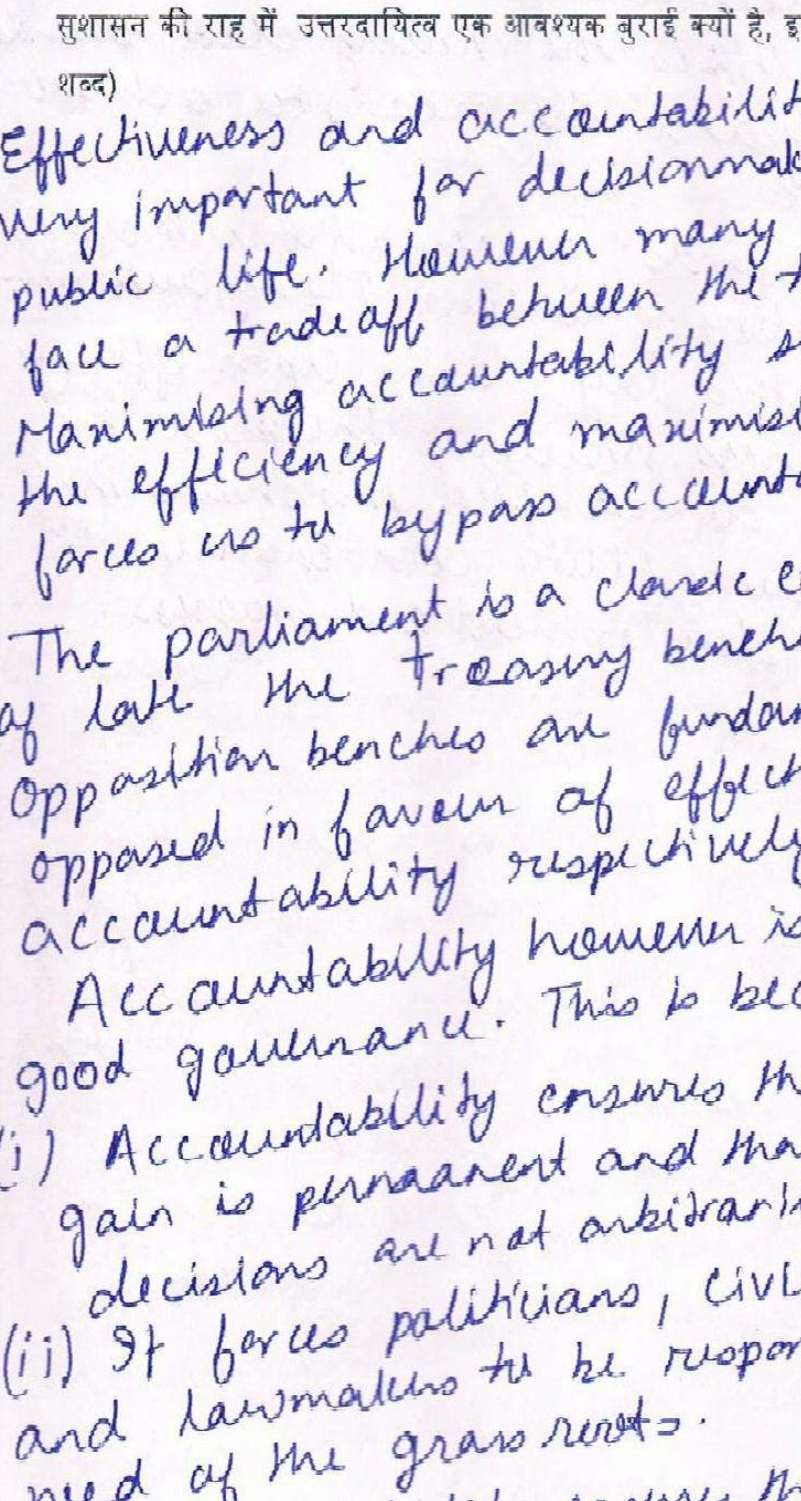 सुशासन की राह में उत्तरदायित्व एक आवश्यक बुराई क्यों है, इ
शब्द)
Effectiveness and accountabilit
very important for decisionmak
public life. However many
face a tradeoff between the t
Maximising accountability s
the efficiency and maximisi
forces us to bypass accounta
The parliament is a classic e
of late the treasury benche
opposition benches are fundam
opposed in favour of effect
accountability respectively
Accountability however is
good governance. This is bec
(i) Accountability ensures th
gain is permaanent and tha
decisions are not arbitrari
(ii) It forces politicians, civi
and lawmakers to be respon
need of the grassroots.